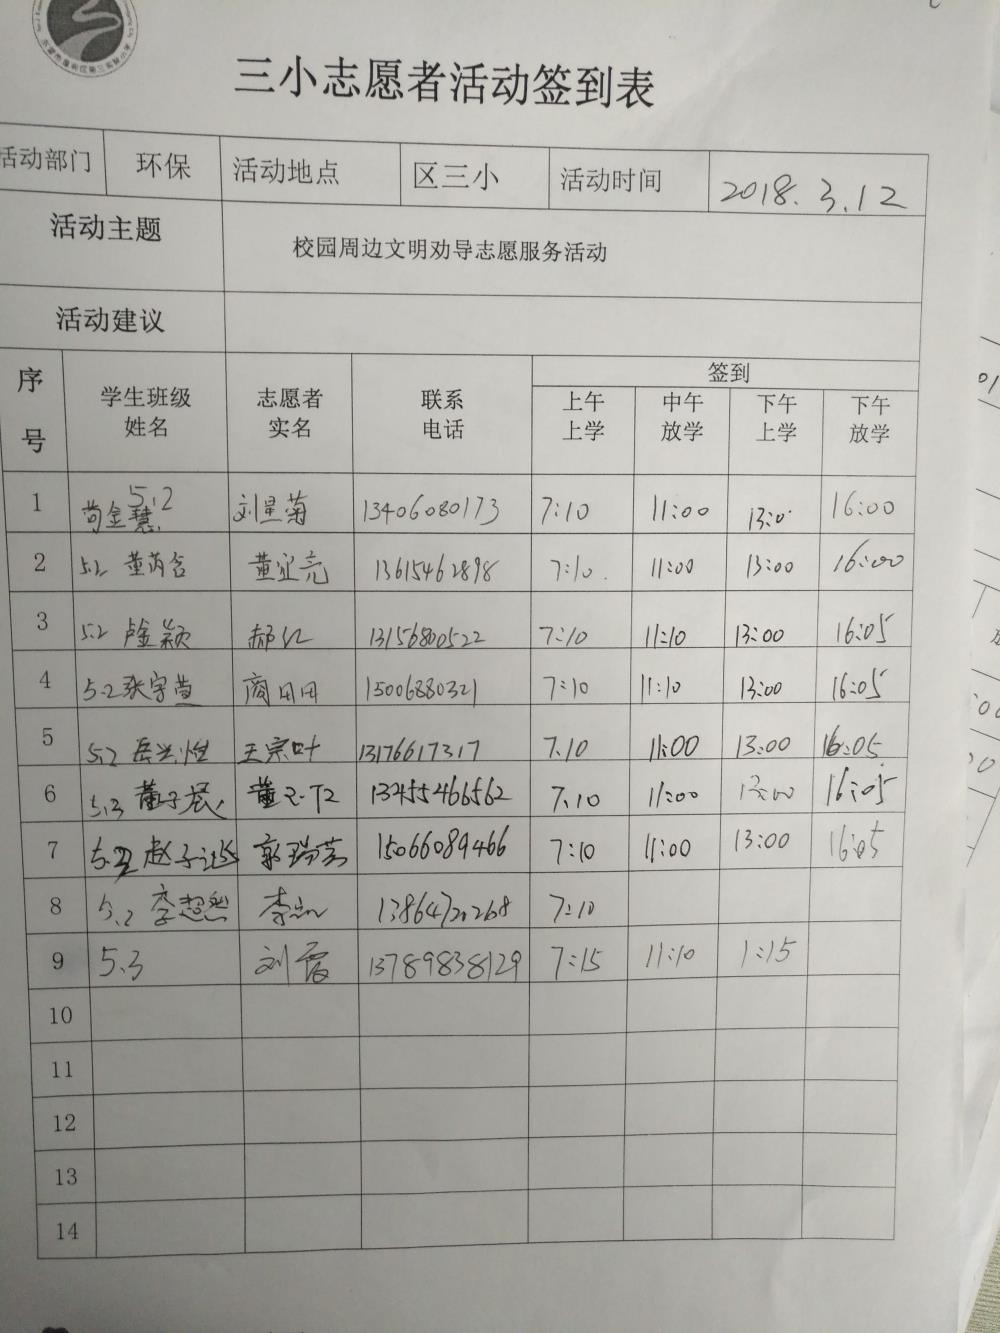 三小志愿者活动签到表
活动部门 环保 活动地点 区三小 活动时间 2018.3.12
活动主题 校园周边文明劝导志愿服务活动
活动建议
序号 学生班级姓名 志愿者实名 联系电话 签到
上午上学 中午放学 下午上学 下午放学
1 5.2 苟金慧 刘星菊 13406080173 7:10 11:00 13:0 16:00
2 5.2 董芮含 董宜亮 13615462898 7:10 11:00 13:00 16:00
3 5.2 卢金颖 郝红 13156800522 7:10 11:10 13:00 16:05
4 5.2 张宇萱 商田田 15006880321 7:10 11:10 13:00 16:05
5 5.2 王宗叶 13176617317 7:10 11:00 13:00 16:05
6 5.3 董子宸 董 13455466562 7:10 11:00 13:00 16:05
7 赵子 郭瑞芸 15066089466 7:10 11:00 13:00 16:05
8 5.2 李想然 李 13864720268 7:10
9 5.3 刘霞 13789838129 7:15 11:10 1:15
10
11
12
13
14